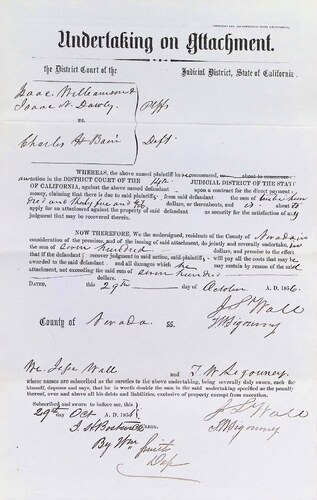 Undertaking on Attachment.
the District Court of the Judicial District, State of California.
Isaac Williamson &
Isaac N. Dawley Plffs
vs.
Charles H Bain Deft
WHEREAS, the above named plaintiff commenced, about to commence
an action in the DISTRICT COURT OF THE 14th JUDICIAL DISTRICT OF THE STATE
OF CALIFORNIA, against the above named defendant upon a contract for the direct payment of
money, claiming that there is due to said plaintiff from said defendant the sum of
dred and thirty five and dollars, or thereabouts, and is about to
apply for an attachment against the property of said defendant as security for the satisfaction of any
judgment that may be recovered therein.
NOW THEREFORE, We the undersigned, residents of the County of Nevada in
consideration of the premises, and of the issuing of said attachment, do jointly and severally undertake, in
the sum of Seven hundred dollars, and promise to the effect
that if the defendant recover judgment in said action, said plaintiff will pay all the costs that may be
awarded to the said defendant and all damages which he may sustain by reason of the said
attachment, not exceeding the said sum of seven hundred
dollars.
DATED, this 29th day of October A. D. 1856.
J S Wall
T W Sigourney
County of Nevada ss.
We Jesse Wall and T. W. Sigourney
whose names are subscribed as the sureties to the above undertaking, being severally duly sworn, each for
himself, deposes and says, that he is worth double the sum in the said undertaking specified as the penalty
thereof, over and above all his debts and liabilities, exclusive of property exempt from execution.
Subscribed and sworn to before me, this
29th day Oct A. D. 1856
J S Wall
T W Sigourney
By Wm Smith
Dep